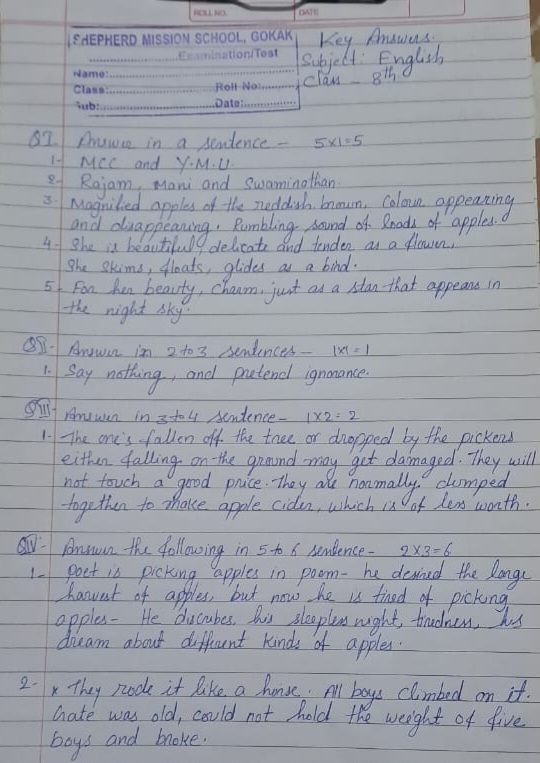 ROLL NO. DATE
SHEPHERD MISSION SCHOOL, GOKAK
Examination/Test
Name:
Class: Roll No:
Sub: Date:
Key Answers.
Subject: English
Class - 8th
QI Answer in a sentence - 5x1=5
1- MCC and Y.M.U.
2- Rajam, Mani and Swaminathan.
3. Magnified apples of the reddish brown, Colour appearing
and disappearing. Rumbling sound of loads of apples.
4- She is beautiful, delicate and tender as a flower,
She skims, floats, glides as a bird.
5. For her beauty, charm, just as a star that appears in
the night sky.
QII- Answer in 2 to 3 sentences - 1x1=1
1. Say nothing, and pretend ignorance.
QIII- Answer in 3 to 4 sentence - 1x2=2
1- The one's fallen off the tree or dropped by the pickers
either falling on the ground may get damaged. They will
not touch a good price. They are normally dumped
together to make apple cider, which is of less worth.
QIV- Answer the following in 5 to 6 sentence - 2x3=6
1- poet is picking apples in poem- he desired the large
harvest of apples, but now he is tired of picking
apples- He discribes his sleepless night, tiredness, his
dream about different kinds of apples.
2- x They rode it like a horse. All boys climbed on it.
Gate was old, could not hold the weight of five
boys and broke.